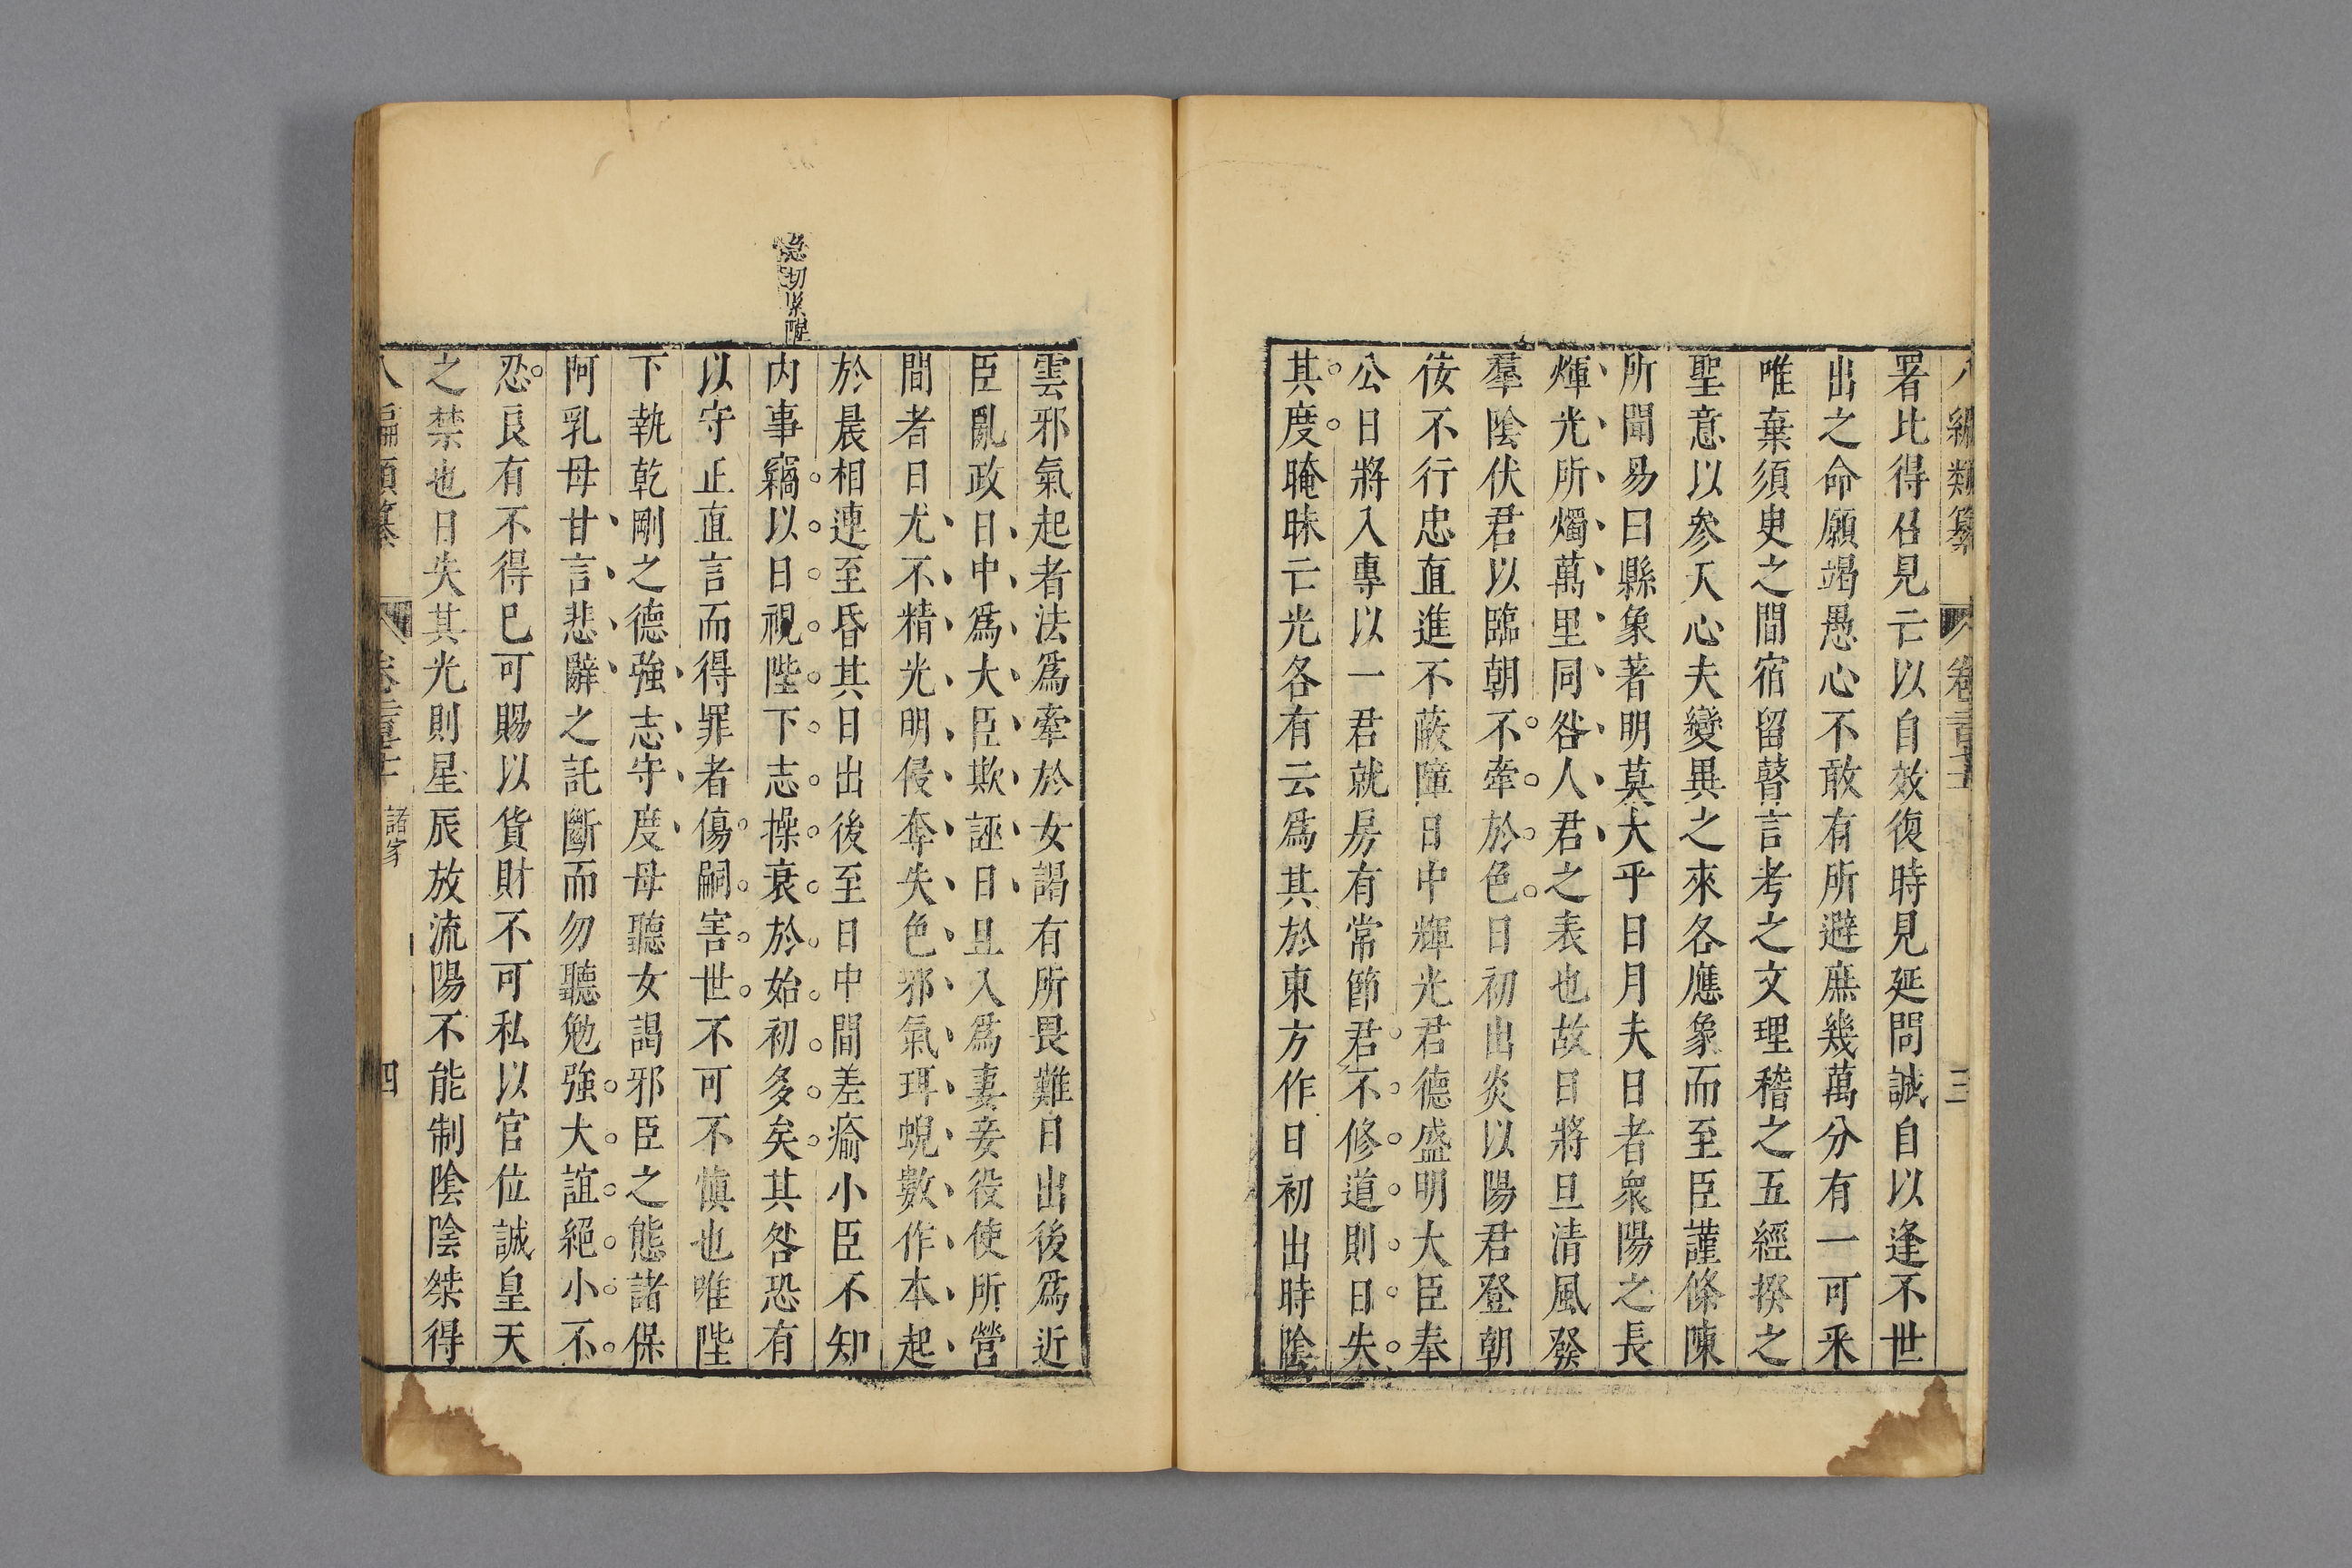 八編類纂 卷二百 三
署比得召見亡以自效復時見延問誠自以逢不世
出之命願竭愚心不敢有所避庶幾萬分有一可采
唯棄須臾之間宿留瞽言考之文理稽之五經揆之
聖意以參天心夫變異之來各應象而至臣謹條陳
所聞易曰縣象著明莫大乎日月夫日者衆陽之長
煇光所燭萬里同晷人君之表也故日將旦清風發
羣陰伏君以臨朝不牽於色日初出炎以陽君登朝
佞不行忠直進不蔽障日中輝光君德盛明大臣奉
公日將入專以一君就房有常節君不修道則日失
其度晻昧亡光各有云爲其於東方作日初出時陰
雲邪氣起者法爲牽於女謁有所畏難日出後爲近
臣亂政日中爲大臣欺誣日且入爲妻妾役使所營
間者日尤不精光明侵奪失色邪氣珥蜺數作本起
於晨相連至昏其日出後至日中間差瘉小臣不知
内事竊以日視陛下志操衰於始初多矣其咎恐有
以守正直言而得罪者傷嗣害世不可不慎也唯陛
下執乾剛之德強志守度毋聽女謁邪臣之態諸保
阿乳母甘言悲辭之託斷而勿聽勉強大誼絕小不
忍良有不得已可賜以貨財不可私以官位誠皇天
之禁也日失其光則星辰放流陽不能制陰陰桀得
八編類纂 卷二百 諸家 四
急切